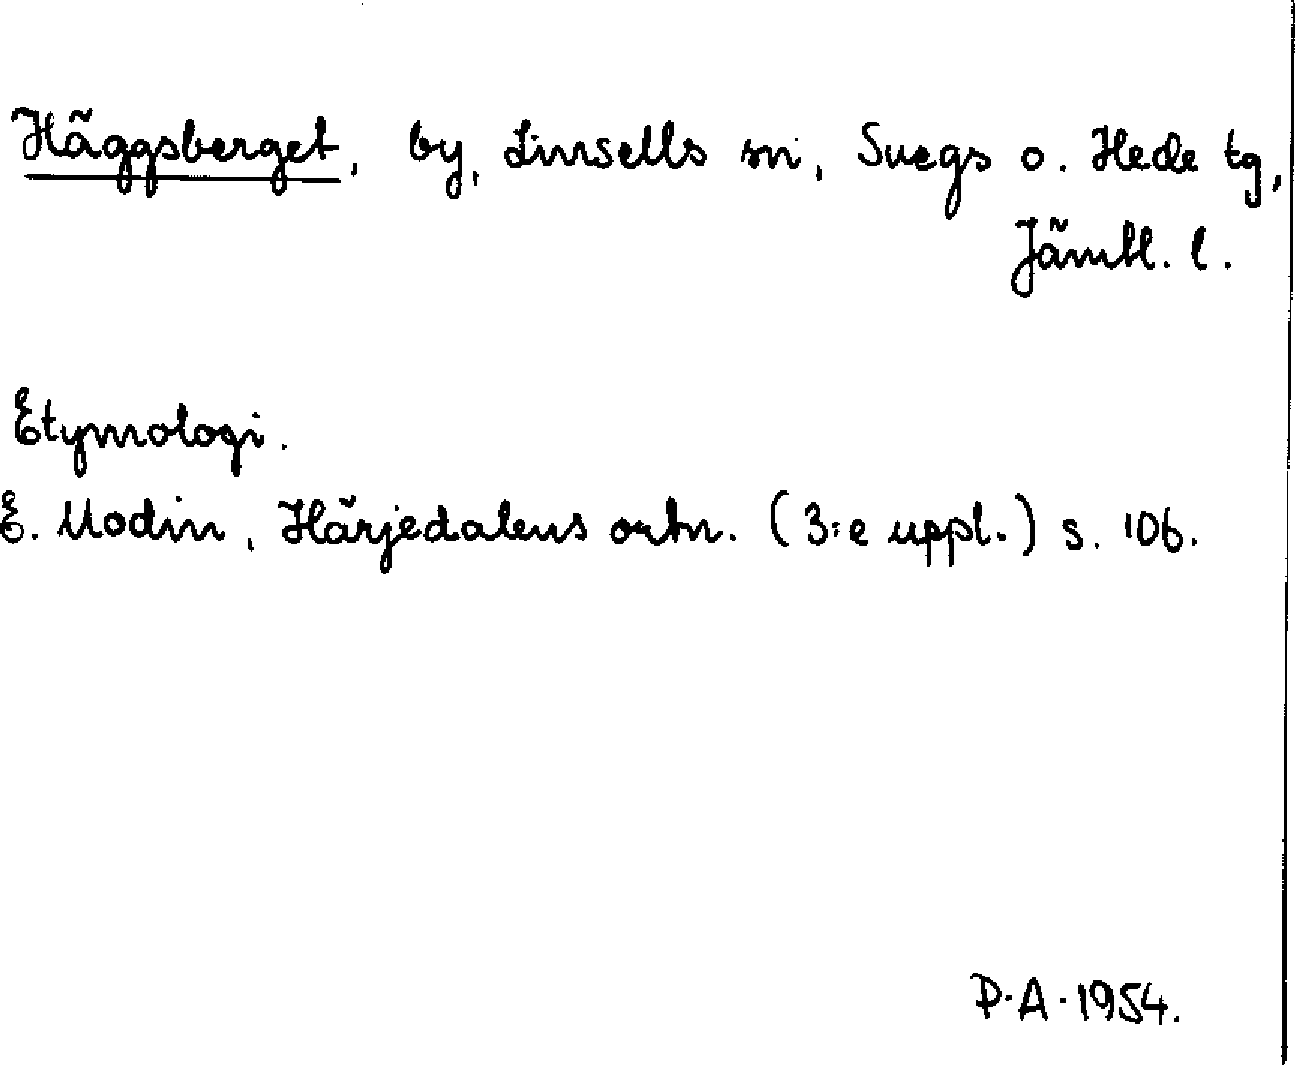 Häggsberget, by, Linsells sn, Svegs o. Hede tg,
Jämtl. l.
Etymologi.
E. Modin, Härjedalens ortn. (3:e uppl.) s. 106.
P.A. 1954.